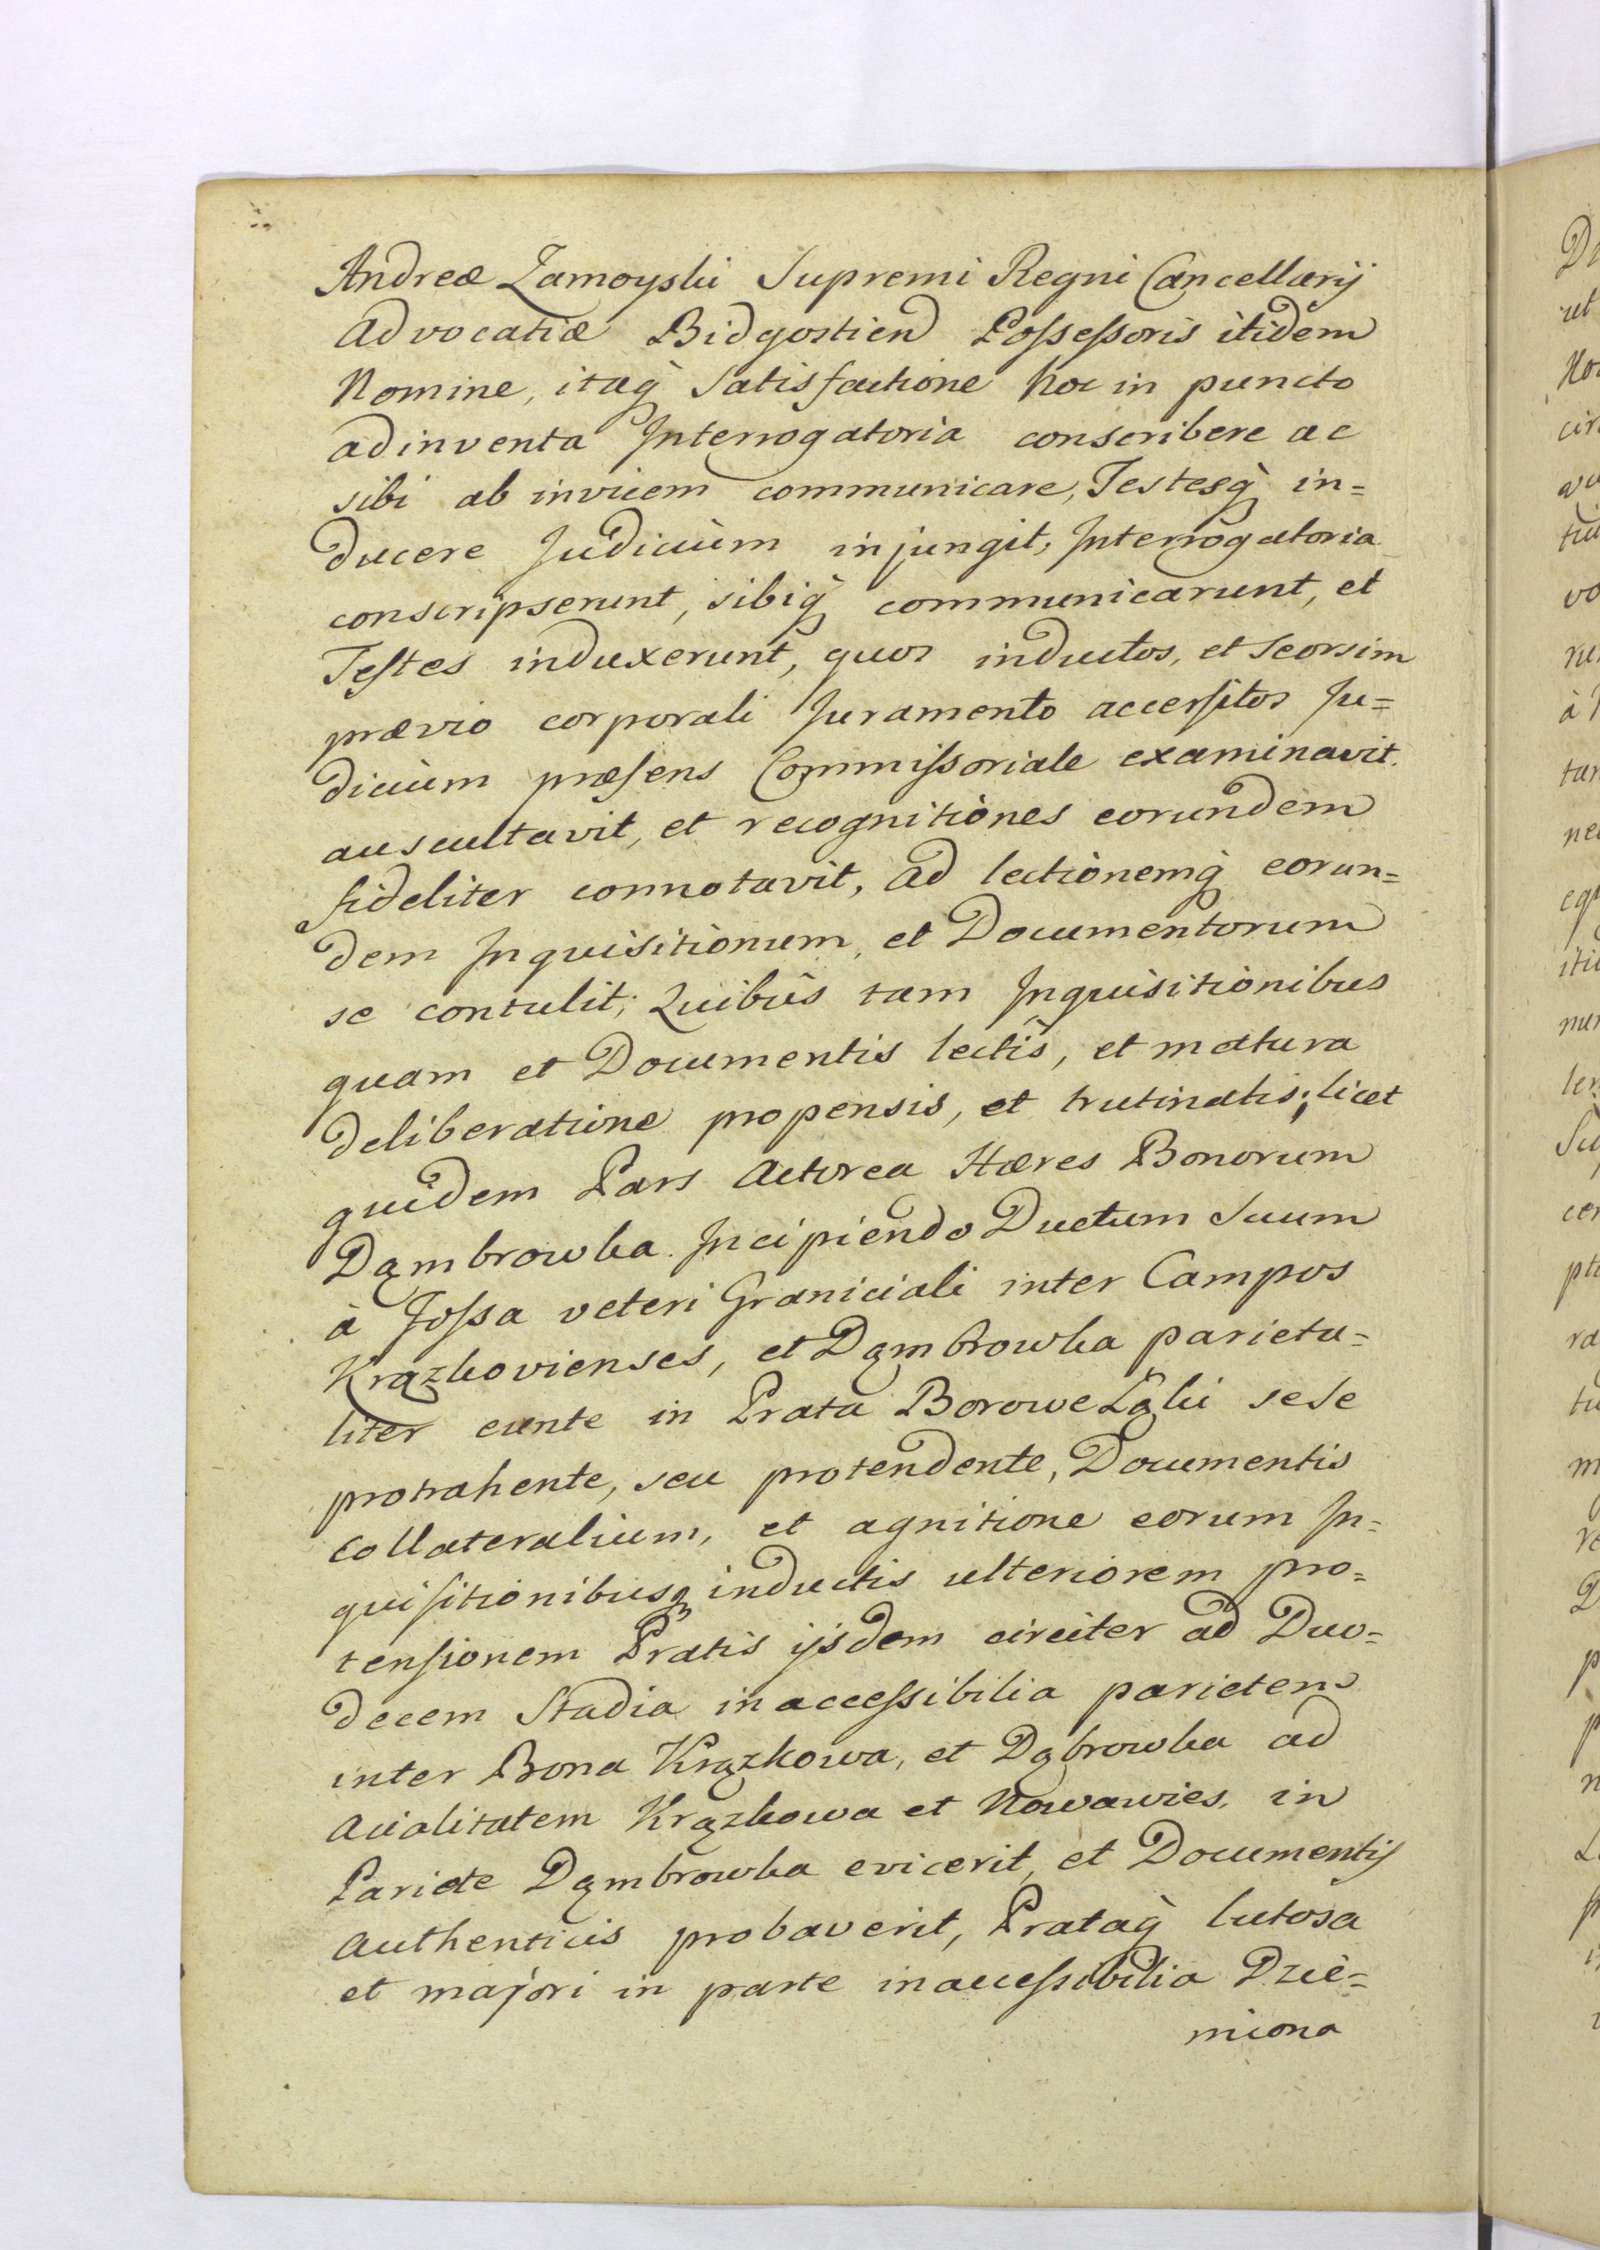 Andreæ Zamoyski Supremi Regni Cancellarij
Advocatiæ Bidgostien Possessoris itidem
Nomine, itaq̀ Satisfactione hoc in puncto
adinventa Interrogatoria conscribere ac
sibi ab invicem communicare, Testesq̀ in=
ducere Judicium injungit, Interrogatoria
conscripserunt, sibiq̀ communicarunt, et
Testes induxerunt, quos inductos, et seorsim
prævio corporali Juramento accersitos Ju=
dicium præsens Commissoriale examinavit.
auscultavit, et recognitiones eorundem
fideliter connotavit, ad lectionemq̀ eorun=
dem Inquisitionum, et Documentorum
se contulit; Quibus tam Inquisitionibus
quam et Documentis lectis, et matura
deliberatione propensis, et trutinatis; licet
quidem Pars Actorea Hæres Bonorum
Dąmbrowka Incipiendo Ductum Suum
à Fossa veteri Graniciali inter Campos
Krązkovienses, et Dąmbrowka parieta=
liter eunte in Prata Borowe Łąki sese
protrahente, seu protendente, Documentis
Collateralium, et agnitione eorum In=
quisitionibusq̀ inductis ulteriorem pro=
tensionem Pratis ijsdem circiter ad Duo=
decem Stadia inaccessibilia parietens
inter Bona Krązkowa, et Dąbrowka ad
Acialitatem Krązkowa et Nowawies, in
Pariete Dąmbrowka evicerit, et Documentis
Authenticis probaverit, Prataq̀ lutosa
et majori in parte inaccessibilia Dzie=
miona